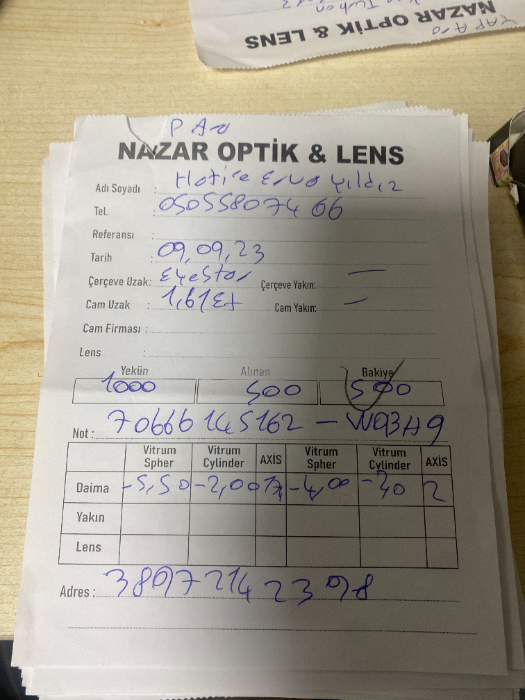 NAZAR OPTİK & LENS
NAZAR OPTİK & LENS
Adı Soyadı : Hatice Erva Yıldız
Tel. : 05055807466
Referansı :
Tarih : 09,09,23
Çerçeve Uzak: Eyestar Çerçeve Yakın: —
Cam Uzak : 1,61 Cam Yakın: —
Cam Firması :
Lens :
Yekün Alınan Bakiye
1000 500 500
Not : 70666145162 - W93H9
Vitrum Spher Vitrum Cylinder AXİS Vitrum Spher Vitrum Cylinder AXİS
Daima -5,50 -2,00 -4,00 2
Yakın
Lens
Adres : 38897214 2398